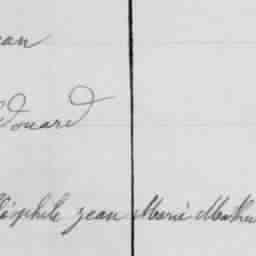 ean
douard
éophile jean Marie Mathu